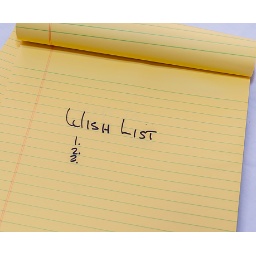 WISH LIST
1.
2.
3.